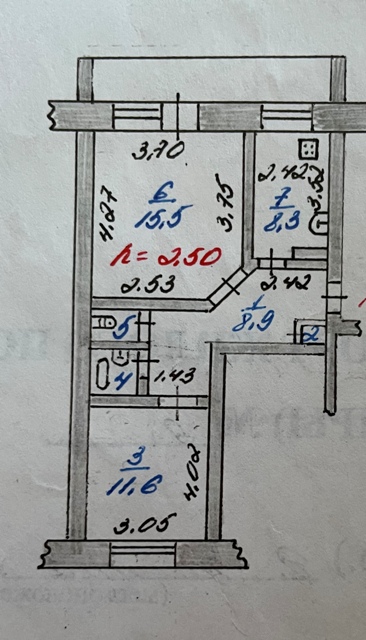 3,70
2,42
6
15,5
4.27
3,75
7
8,3
h = 2.50
2.53
2.42
1
8,9
5
2
4
1.43
3
11.6
4.02
3.05